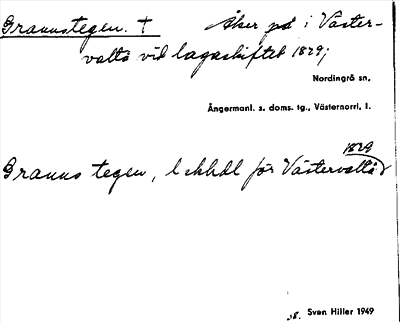 Grannstegen. † Åker på i Väster-
valto vid lagaskiftet 1829;
Nordingrå sn,
Ångermanl. s. doms. tg., Västernorrl. l.
1829
Granns tegen, l skhdl för Västervalto
Sven Hiller 1949